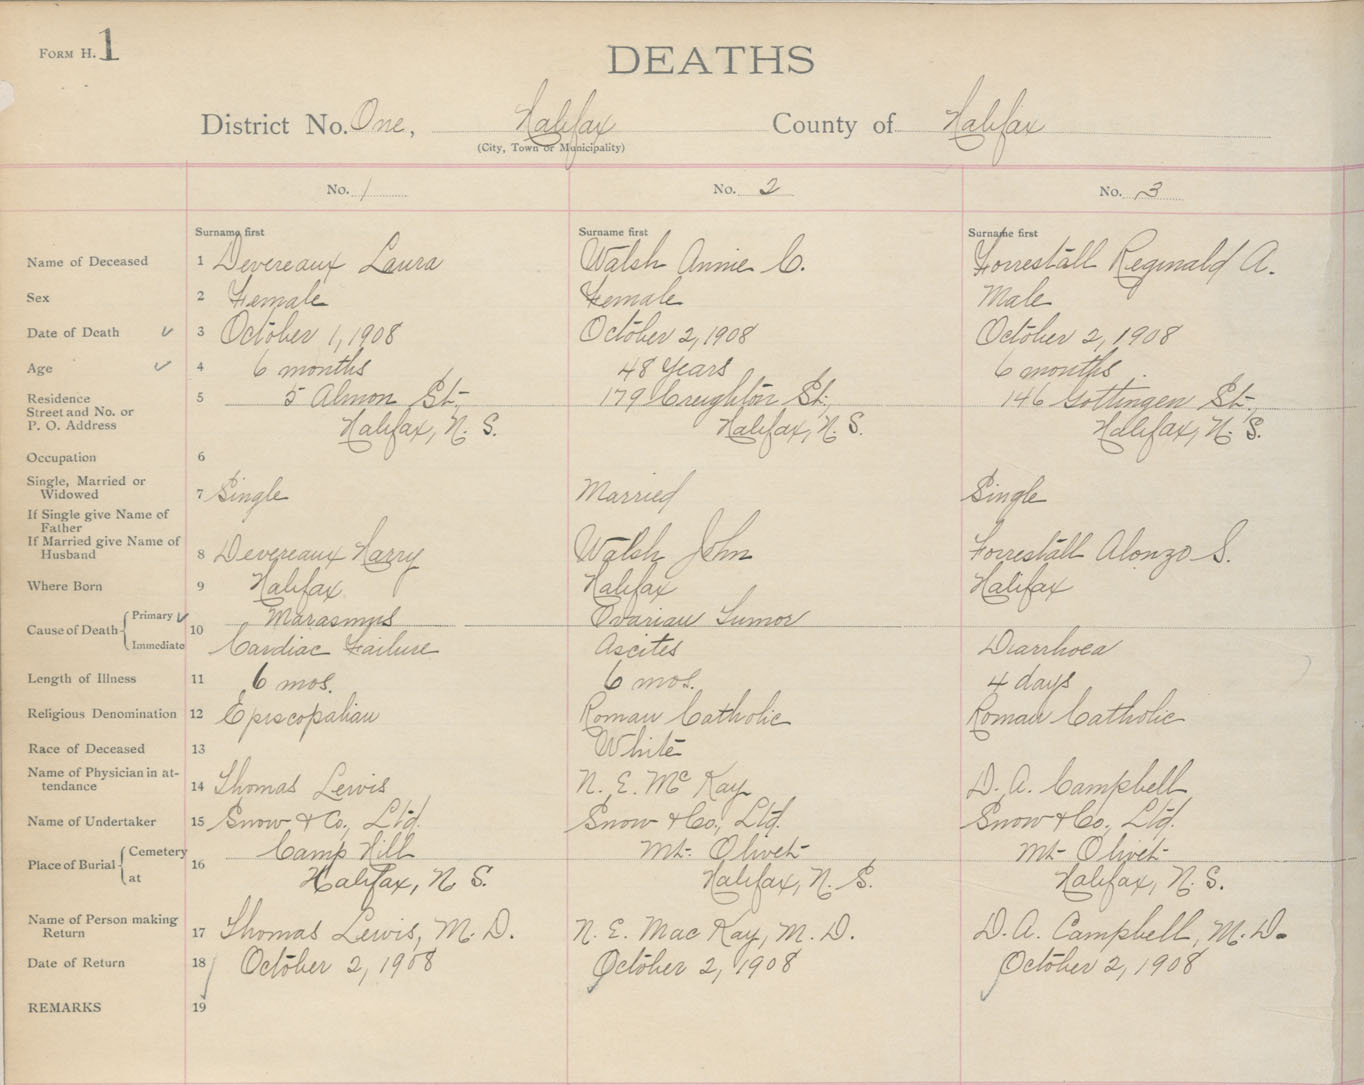 FORM H. 1
DEATHS
District No. One, Halifax County of Halifax
(City, Town or Municipality)
No. 1 No. 2 No. 3
Surname first Surname first Surname first
Name of Deceased 1 Devereaux Laura Walsh Annie C. Forrestall Reginald A.
Sex 2 Female Female Male
Date of Death ✓ 3 October 1, 1908 October 2, 1908 October 2, 1908
Age ✓ 4 6 months 48 Years 6 months
Residence 5 5 Almon St., 179 Creighton St., 146 Gottingen St.,
Street and No. or
P. O. Address Halifax, N. S. Halifax, N. S. Halifax, N. S.
Occupation 6
Single, Married or
Widowed 7 Single Married Single
If Single give Name of
Father
If Married give Name of
Husband 8 Devereaux Harry Walsh John Forrestall Alonzo S.
Where Born 9 Halifax Halifax Halifax
Cause of Death 10 Primary ✓ Marasmus Ovarian Tumor
Immediate Cardiac Failure Ascites Diarrhoea
Length of Illness 11 6 mos. 6 mos. 4 days
Religious Denomination 12 Episcopalian Roman Catholic Roman Catholic
Race of Deceased 13 White
Name of Physician in at-
tendance 14 Thomas Lewis N. E. McKay D. A. Campbell
Name of Undertaker 15 Snow & Co., Ltd. Snow & Co., Ltd. Snow & Co., Ltd.
Place of Burial 16 Cemetery Camp Hill Mt. Olivet Mt. Olivet
at Halifax, N S. Halifax, N. S. Halifax, N. S.
Name of Person making
Return 17 Thomas Lewis, M. D. N. E. MacKay, M. D. D. A. Campbell, M. D.
Date of Return 18 October 2, 1908 October 2, 1908 October 2, 1908
REMARKS 19